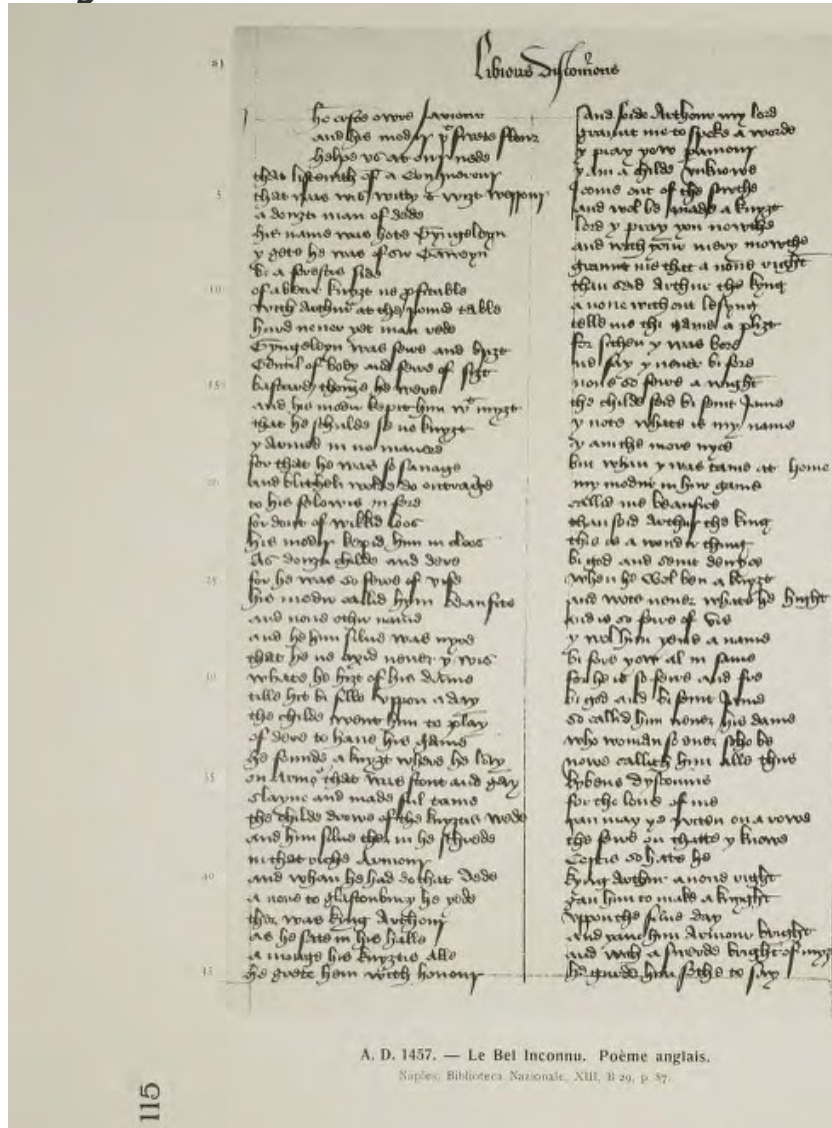 a)
Libious Disconious
he crose owre saviour
and his modir þt swete flour
helpe vs at our nede
that listenith of a conquerour
5 that was wis witty & wizt werriour
a douzti man of dede
his name was hote Gyngeleyn
y gete he was of sir Gaweyn
bi a forestis side
10 of a bettir knyzt ne profitable
with Arthur at the round table
hurd never yet man rede
Gyngeleyn was feire and brizt
Gentil of body and feire of sizt
15 bastard thouze he were
and his modir kept him wt myzt
that he schulde se no knyzt
y Armed in no manere
for that he was so savage
20 and blitheli wolde do outrage
to his felowis in fere
for dout of wikkid loos
his modir kepid him in cloos
As douzti childe and dere
25 for he was so feire of vise
his modir callid hym beaufits
and none othir name
and he him silve was nyce
that he ne axid never y wis
30 whate he hizt of his dame
tille hit bi fille vppon a day
the childe went him to play
of dere to have his game
he founde a knyzt where he lay
35 on armor that was stout and gay
Slayne and made ful tame
the childe drowe of the knyztis wede
and him silve ther in he schrede
in that riche Armour
40 and whan he had do that dede
a none to glastonbury he yede
ther was king Arthour
as he sate in his halle
a monge his knyztis alle
45 he grete hem with honour
And seide Arthour my lord
graunt me to speke a worde
y pray yow paramour
y am a childe vnknowe
I come out of the sowthe
and wol be made a knyzt
lord y pray you nowthe
and with your mery mowthe
graunt me that a none right
than said Arthur the kyng
a none without lesyng
telle me thi name a plizt
for sethen y was bore
ne say y never bi fore
none so feire a wight
the childe seid bi seint Jame
y note whate is my name
y am the more nyce
but whan y was tame at home
my modir in hir game
callid me beaufice
than seid Arthur the king
this is a wonder thing
bi god and seint denyce
when he wol ben a knyzt
and wote never whate he hight
and is so feire of vis
y wol him yeve a name
bi fore yow al in same
for he is so feire and fre
bi god and bi seint Jame
so callid him never his dame
who woman so ever scho be
nowe callith him alle thus
lybeus dysconius
for the love of me
than may ye witen on a rowe
the feire vn thatte y knowe
Certis so hate he
kyng Arthur anone right
gan him to make a knyght
vppon the silve day
and yave him Armour bright
and with a swerde bright of myzt
he gurde him sothe to say
A. D. 1457. — Le Bel Inconnu. Poème anglais.
Naples, Biblioteca Nazionale, XIII, B 29, p. 87.
115